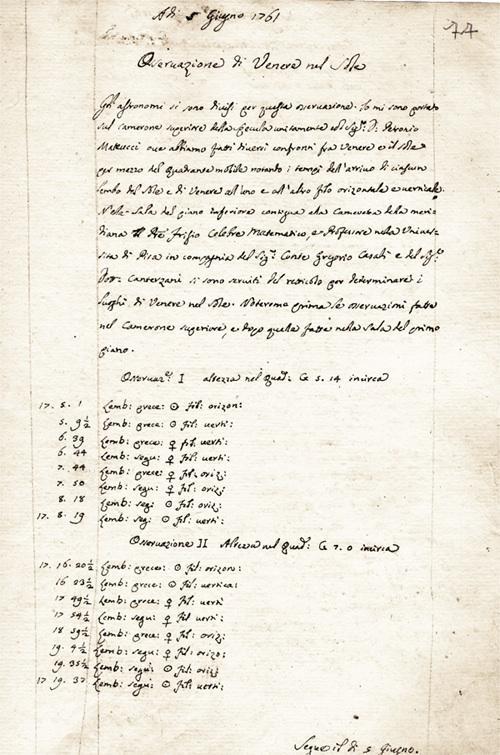 Adi 5 Giugno 1761
77
Osservazione di Venere nel Sole
Gli astronomi si sono divisi per questa osservazione. Io mi sono portato
sul camerone superiore della specula unitamente col Sig.r D. Petronio
Matteucci ove abbiamo fatti diversi confronti fra Venere e il Sole
per mezzo del quadrante mobile notando i tempi dell'arrivo di ciascun
lembo del Sole e di Venere all'uno e all'altro filo orizontale e verticale.
Nella Sala del piano inferiore contigua alla Camera della meri-
diana il Pre Frisio Celebre Matematico, e Professore nella Univer-
sità di Pisa in compagnia del Sig.r Conte Gregorio Casali e del Sig.r
Dott. Canterzani si sono serviti del reticolo per determinare i
luoghi di Venere nel Sole. Noteremo prima le osservazioni fatte
nel Camerone superiore, e dopo quelle fatte nella Sala del primo
piano.
Osservaz. I altezza nel quad: G 5. 14 incirca
17. 5. 1 Lemb: prece: ☉ fil: orizon:
5. 9½ Lemb: prece: ☉ fil: verti:
6. 39 Lemb: prece: ♀ fil: verti:
6. 44 Lemb: segu: ♀ fil: verti:
7. 44 Lemb: prece: ♀ fil: oriz:
7. 50 Lemb: segu: ♀ fil: oriz:
8. 18 Lemb: seg: ☉ fil: oriz:
17. 8. 19 Lemb: seg: ☉ fil: verti:
Osservazione II Altezza nel quad: G 7. 0 incirca
17. 16. 20½ Lemb: prece: ☉ fil: orizon:
16 23½ Lemb: prece: ☉ fil: vertica:
17 49½ Lemb: prece: ♀ fil: verti
17 54½ Lemb: segu: ♀ fil verti:
18 59½ Lemb: prece: ♀ fil: oriz:
19. 4½ Lemb: segu: ♀ fil: orizo:
19. 35½ Lemb: segu: ☉ fil: oriz:
17 19. 37 Lemb: segu: ☉ fil: verti:
Segue il dì 5 Giugno.